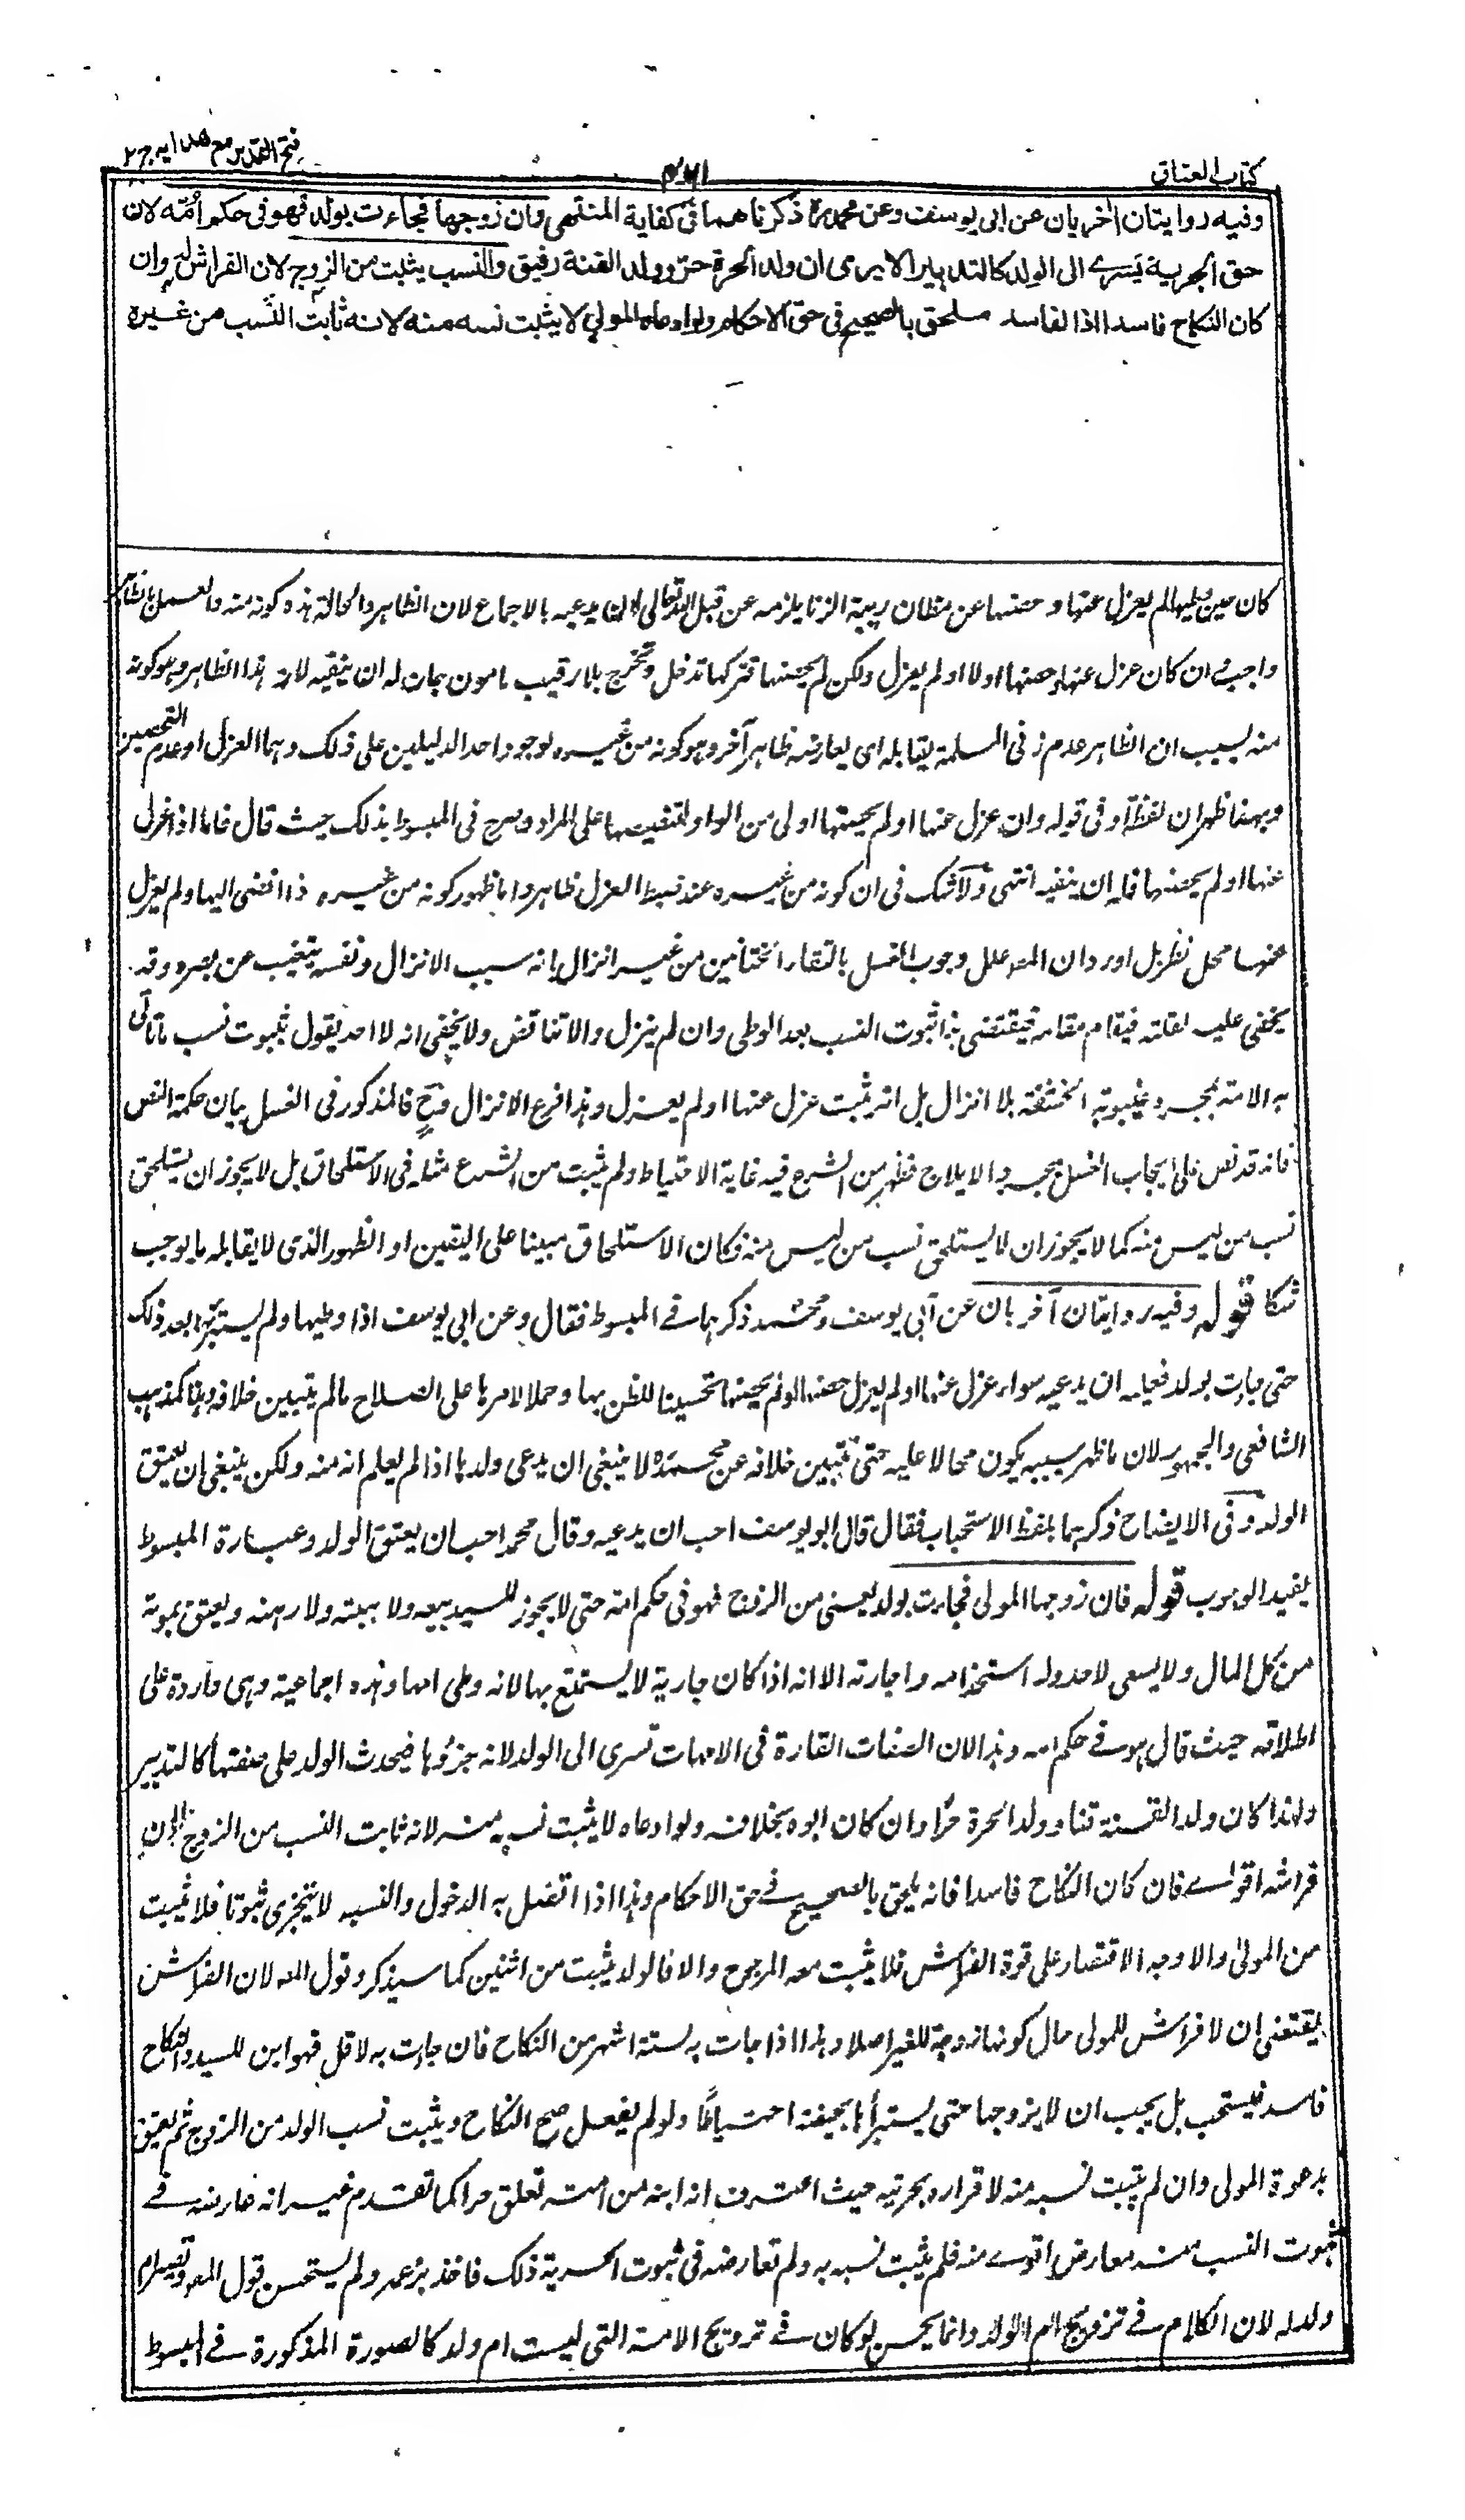 كتاب العتاق
٤٦١
فتح القدير مع هدايه ج ٢
وفيه روايتان اخريان عن ابى يوسف وعن محمد رح ذكرناهما فى كفاية المنتهى وان زوجها فجاءت بولد فهو فى حكم امّه لان
حق الحرية يَسرے الى الولد كالتدبير الا يرى ان ولد الحرة حرّ وولد القنة رقيق والنسب يثبت من الزوج لان الفراش له وان
كان النكاح فاسدا اذ الفاسد ملحق بالصحيح فى حق الاحكام ولو ادعاه المولى لا يثبت نسبه منه لانه ثابت النَّسب من غيره
كان حين وطيها لم يعزل عنها وحصنها عن مظان ريبة الزنا يلزمه من قبل الله تعالى ان يدعيه بالاجماع لان الظاهر والحالة هذه كونه منه والعمل بالظاهر
واجب ان كان عزل عنها حصنها اولا او لم يعزل ولكن لم يحصنها فتركها تدخل وتخرج بلا رقيب مامون جاز له ان ينفيه لان هذا الظاهر وهو كونه
منه بسبب ان الظاهر عدم زنى المسلمة يقابله اى يعارضه ظاهر آخر وهو كونه من غيره لوجود احد الدليلين على ذلك وهما العزل او عدم التحصين
وبهذا ظهر ان لفظة او فى قوله وان عزل عنها او لم يحصنها اولى من الواو لتنصيصها على المراد وصرح فى المبسوط بذلك حيث قال فاما اذا عزل
عنها او لم يحصنها فله ان ينفيه انتهى ولا شك فى ان كونه من غيره عند ضبط العزل ظاهر واما ظهور كونه من غيره اذا افضى اليها ولم يعزل
عنها محل نظر بل اورد ان المصـ علل وجوب الغسل بالتقاء الختانين من غير انزال بانه سبب الانزال ونفسه يتغيب عن بصره وقد
يخفى عليه لقلته فيقام مقامه فيقتضى هذا ثبوت النسب بعد الوطى وان لم ينزل والا تناقض ولا يخفى انه لا احد يقول بثبوت نسب ما تاتى
به الامة بمجرد غيبوبة الحشفة بلا انزال بل انه يثبت عزل عنها او لم يعزل وهذا فرع الانزال وحٍ فالمذكور فى الغسل بيان حكمة النص
فانه قد نص على ايجاب الغسل بمجرد الايلاج فظهر من الشرع فيه غاية الاحتياط ولم يثبت من الشرع مثله فى الاستلحاق بل لا يجوز ان يستلحق
نسب من ليس منه كما لا يجوز ان لا يستلحق نسب من ليس منه فكان الاستلحاق مبينا على اليقين او الظهور الذى لا يقابله ما يوجب
شكا قوله وفيه روايتان آخريان عن أبى يوسف ومحمد ذكرهما فے المبسوط فقال وعن ابى يوسف اذا وطيها ولم يستبرئها بعد ذلك
حتى جاءت بولد فعليه ان يدعيه سواء عزل عنها او لم يعزل حصنها او لم يحصنها تحسينا للظن بها وحملا لامرها على الصلاح ما لم يتبين خلافه وهذا كمذهب
الشافعى والجمهور لان ما ظهر سببه يكون محالا عليه حتى يتبين خلافه عن محمد رح لا ينبغى ان يدعى ولدها اذا لم يعلم انه منه ولكن ينبغى ان يعتق
الولد وفى الايضاح ذكرهما بلفظ الاستحباب فقال قال ابو يوسف احب ان يدعيه وقال محمد احب ان يعتق الولد وعبارة المبسوط
يفيد الوجوب قوله فان زوجها المولى فجاءت بولد يعنى من الزوج فهو فى حكم امه حتى لا يجوز للسيد بيعه ولا هبته ولا رهنه ويعتق بموته
من كل المال ولا يسعى لاحد وله استخدامه واجارته الا انه اذا كان جارية لا يستمتع بها لانه وطى امها وهذه اجماعية وهى واردة على
اطلاقه حيث قال هو فے حكم امه وهذا لان الصفات القارة فى الامهات تسرى الى الولد لانه جزؤها فيحدث الولد على صفتها كالتدبير
ولهذا كان ولد القنة قنا وولد الحرة حرًا وان كان ابوه بخلافه ولو ادعاه لا يثبت نسبه منه لانه ثابت النسب من الزوج لان
فراشه اقوے فان كان النكاح فاسدا فانه يلحق بالصحيح فے حق الاحكام وهذا اذا اتصل به الدخول والنسب لا يتجزى ثبوتا فلا يثبت
من المولى والاوجه الاقتصار على قوة الفراش فلا يثبت معه المرجوح والا فالولد يثبت من اثنين كما سيذكر وقول المصـ لان الفراش له
يقتضى ان لا فراش للمولى حال كونها زوجة للغير اصلا وهذا اذا جاءت به لستة اشهر من النكاح فان جاءت به لاقل فهو ابن للسيد والنكاح
فاسد فيستحب بل يجب ان لا يزوجها حتى يستبرأها بحيضة احتياطًا ولو لم يفعل صح النكاح ويثبت نسب الولد من الزوج ثم يعتق
بدعوة المولى وان لم يثبت نسبه منه لاقراره بحريته حيث اعترف انه ابنه من امته تعلق حرا كما تقدم غير انه عارضه فے
ثبوت النسب منه معارض اقوے منه فلم يثبت نسبه به ولم تعارضه فى ثبوت الحرية ذلك فاخذ بزعمه ولم يستحسن قول المصـ وتصير ام
ولد له لان الكلام فے تزويج ام الولد وانما يحسن لو كان فے تزويج الامة التى ليست ام ولد كالصورة المذكورة فے المبسوط